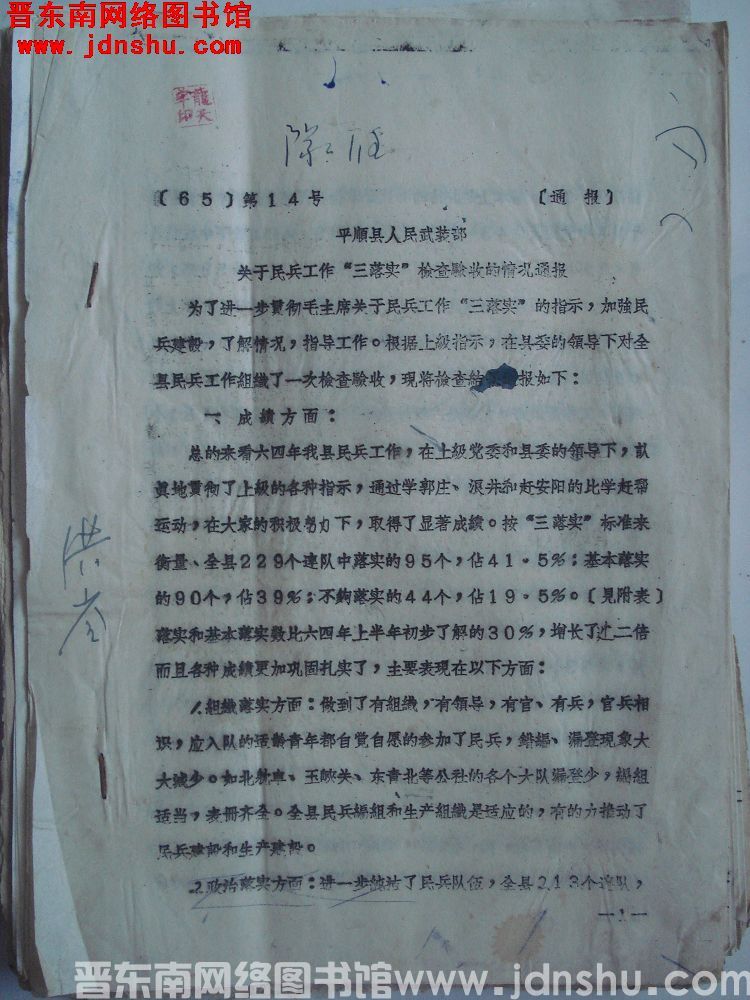 晋东南网络图书馆
www.jdnshu.com
〔65〕第14号 〔通报〕
平顺县人民武装部
关于民兵工作“三落实”检查验收的情况通报
为了进一步贯彻毛主席关于民兵工作“三落实”的指示,加強民
兵建設,了解情况,指导工作。根据上級指示,在县委的領导下对全
县民兵工作組織了一次检查驗收,现将检查結 报如下:
一、成績方面:
总的来看六四年我县民兵工作,在上級党委和县委的領导下,认
眞地貫彻了上級的各种指示,通过学郭庄、 和赶安阳的比学赶帮
运动,在大家的积极努力下,取得了显著成績。按“三落实”标准来
衡量、全县229个連队中落实的95个,佔41·5%;基本落实
的90个,佔39%;不夠落实的44个,佔19·5%。〔見附表〕
落实和基本落实数比六四年上半年初步了解的30%,增长了近二倍
而且各种成績更加巩固扎实了,主要表现在以下方面:
1.組織落实方面:做到了有組織,有領导,有官、有兵,官兵相
识,应入队的适龄青年都自觉自愿的参加了民兵, 漏登现象大
大减少。如北耽車、玉峽关、东青北等公社的各个大队漏登少,編組
适当,表冊齐全。全县民兵編組和生产組織是适应的,有的力推动了
民兵建設和生产建設。
2.政治落实方面:进一步純洁了民兵队伍,全县213个連队,
—1—
晋东南网络图书馆www.jdnshu.com